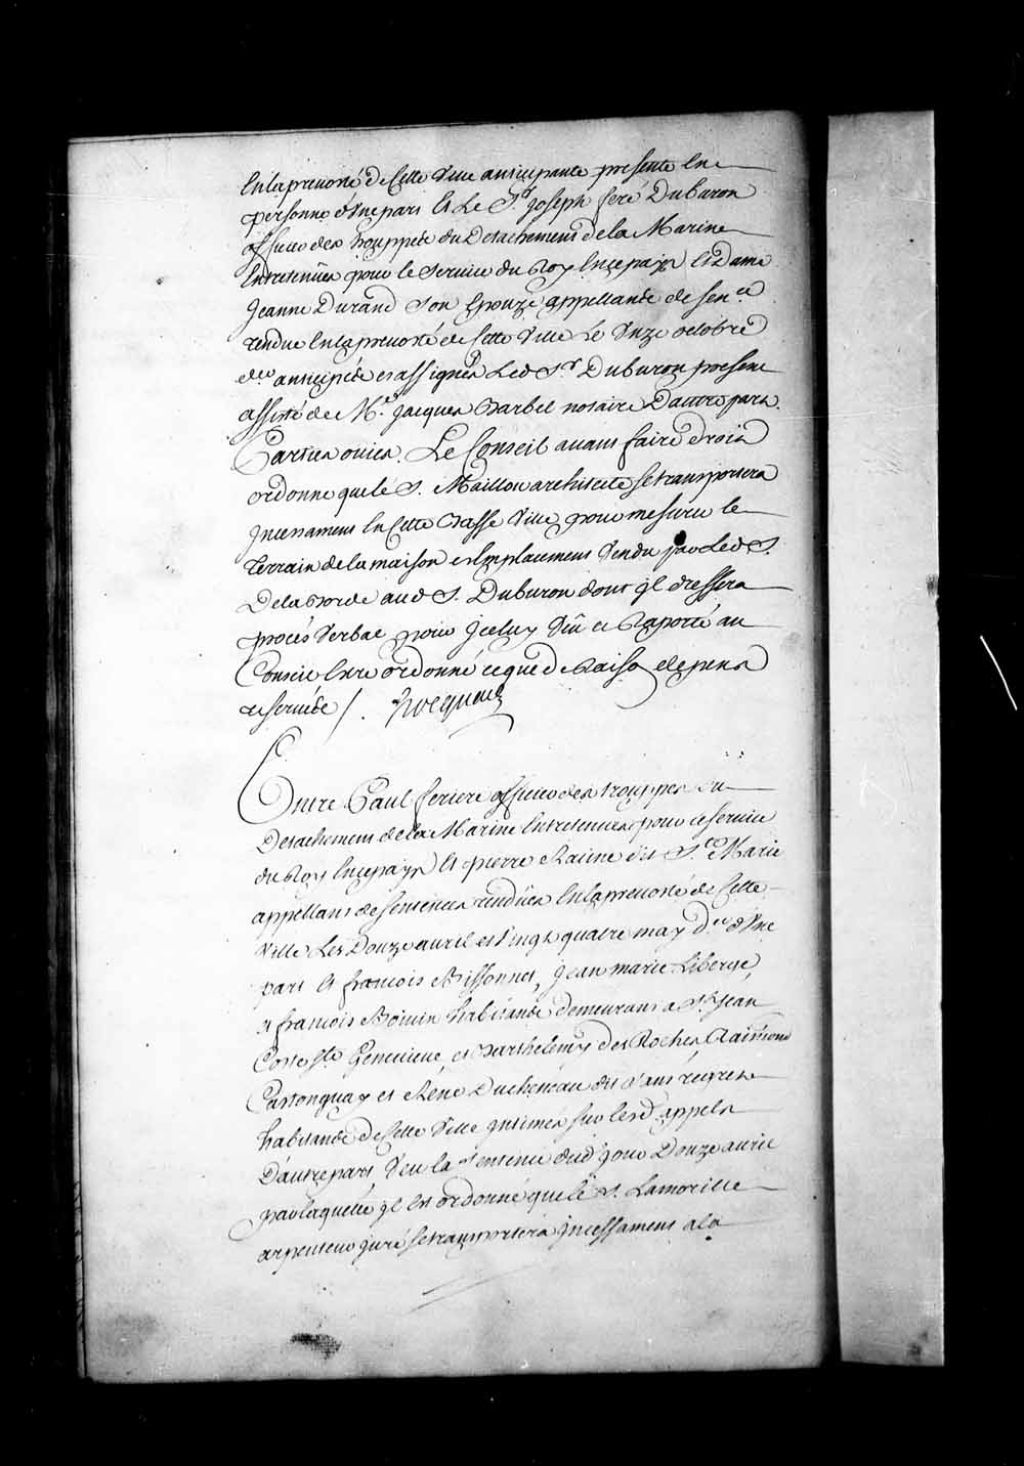 En la prevosté de Cette Ville anticipante presente En
personne d'Une part Et Le Sr. Joseph feré Dubaron
officier des trouppes du Detachement de la Marine
Entretenües pour le Service du Roy En ce pays Et Dame
Jeanne Durand Son Epouze appellante de Sence
rendue En la prevosté de Cette Ville Le Unze octobre
der anticipés et assignés Led Sr Duburon present
assisté de Me Jacques Barbel notaire D'autre part.
Parties ouies. Le Conseil avant faire droit
ordonne que le S. Maillou architecte se transportera
Incessament En Cette Basse Ville pour mesurer le
terrain de la maison et Emplacement Vendu par Led S.
Delaborde aud S. Duburon dont jl dressera
procés Verbal pour Jceluy Vû et Raporté au
Conseil Estre ordonné ce que de Raison depens
reservés /. Hocquart
Entre Paul feriere officier des trouppes du
Detachement de la Marine Entretenües pour le service
du Roy En ce pays Et pierre Racine dit Ste Marie
appellans de sentences rendües En la prevosté de Cette
Ville Les Douze avril et Vingt quatre may der d'Une
part Et francois Bissonnet, Jean marie Liberge,
et francois Boivin habitans demeurans a St Jean
Coste Ste Genevieve, et Barthelemy des Roches Raimond
Castonguay et Réné Duchéneau dit Sans regret
habitans de Cette Ville Intimés sur lesd. appels
D'autre part Veu la Sentence dud. jour Douze avril
par laquelle jl Est ordonné que le S. Lamorille
arpenteur juré se transportera jncessament a la